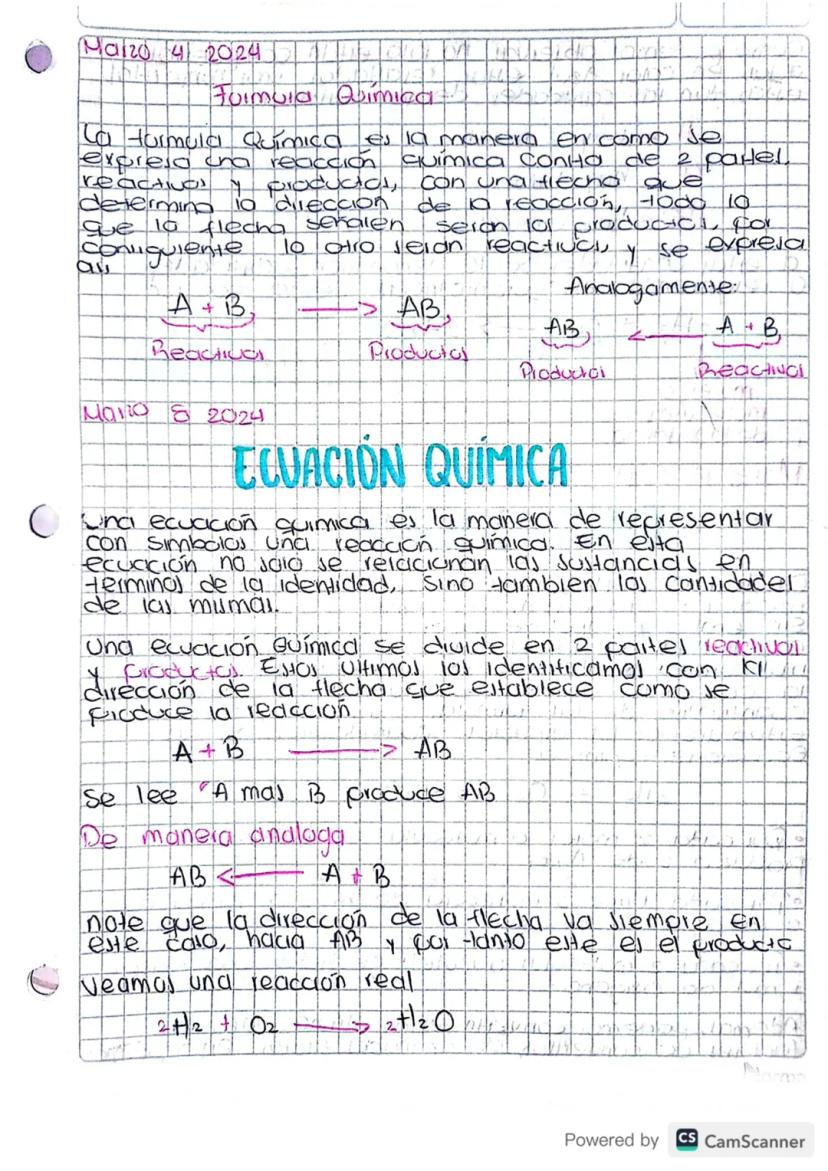 Marzo 4 2024
Formula Química
La formula Química es la manera en como se
expresa una reacción química consta de 2 partes.
reactivos y productos, con una flecha que
determina la dirección de la reacción, todo lo
que la flecha señalen seran los productos, por
consiguiente lo otro seran reactivos, y se expresa
asi,
Analogamente:
A + B, → AB,
AB, ← A + B,
Reactivos Productos
Productos Reactivos
Marzo 8 2024
ECUACIÓN QUÍMICA
Una ecuación química es la manera de representar
con simbolos una reacción química. En esta
ecuación no solo se relacionan las sustancias en
terminos de la identidad, sino tambien las cantidades
de las mismas.
Una ecuación Química se divide en 2 partes reactivos
y productos. Estos ultimos los identificamos con
dirección de la flecha que establece como se
produce la reacción
A + B → AB
se lee "A mas B produce AB
De manera analoga
AB ← A + B
note que la dirección de la flecha va siempre en
este caso, hacia AB y por tanto este es el producto
veamos una reacción real
2H2 + O2 → 2H2O
Powered by CS CamScanner